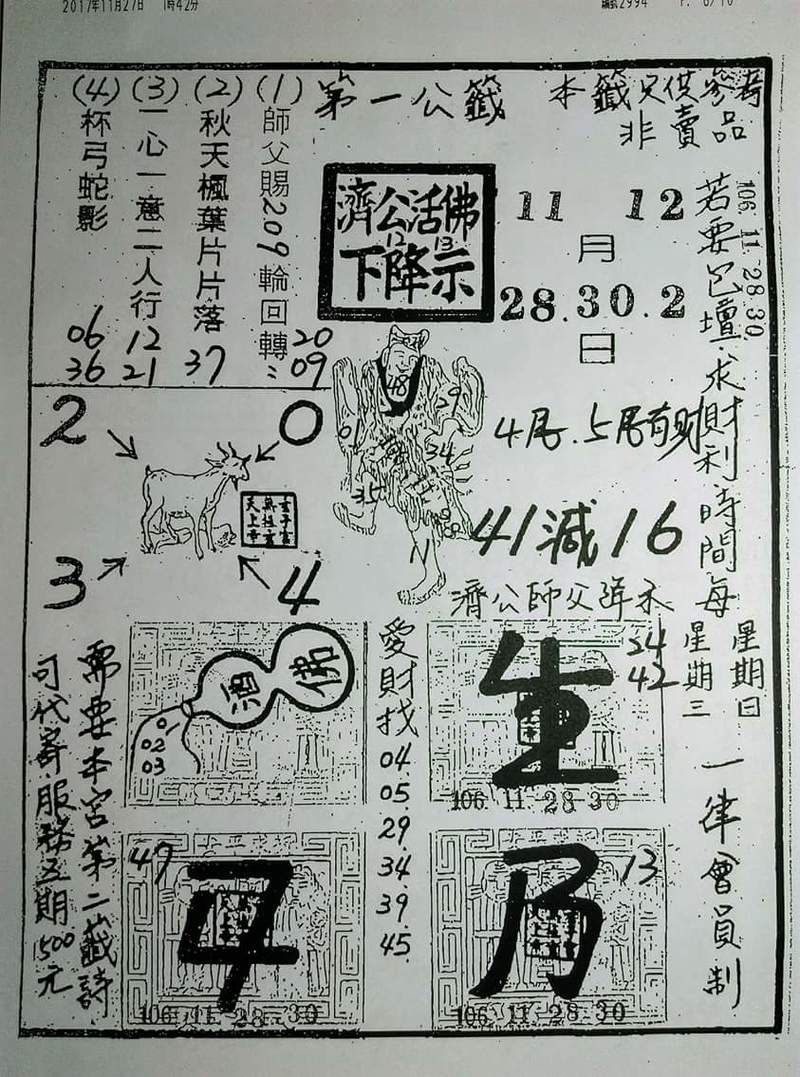 2017年11月27日 1時42分
編號2994 P. 6/10
本籤只供參考
非賣品
第一公籤
(1)師父賜209輪回轉
20
09
(2)秋天楓葉片片落
37
(3)一心一意二人行
12
21
(4)杯弓蛇影
06
36
濟公活佛
12 13
下降示
11 12
月
28.30.2
日
106.11.28.30.
若要已壇求財利時間每
星期日
星期三
一律會員制
48
29
01
34
35
11
4尾.5尾有财
41減16
濟公師父降示
2
0
3
4
佛
酒
01
02
03
愛財找
04
05
29
34
39
45
生
24
42
106.11.28.30
47
106.11.28.30
乃
13
106.11.28.30
需要本宮第二籤詩
可代寄服務五期1500元